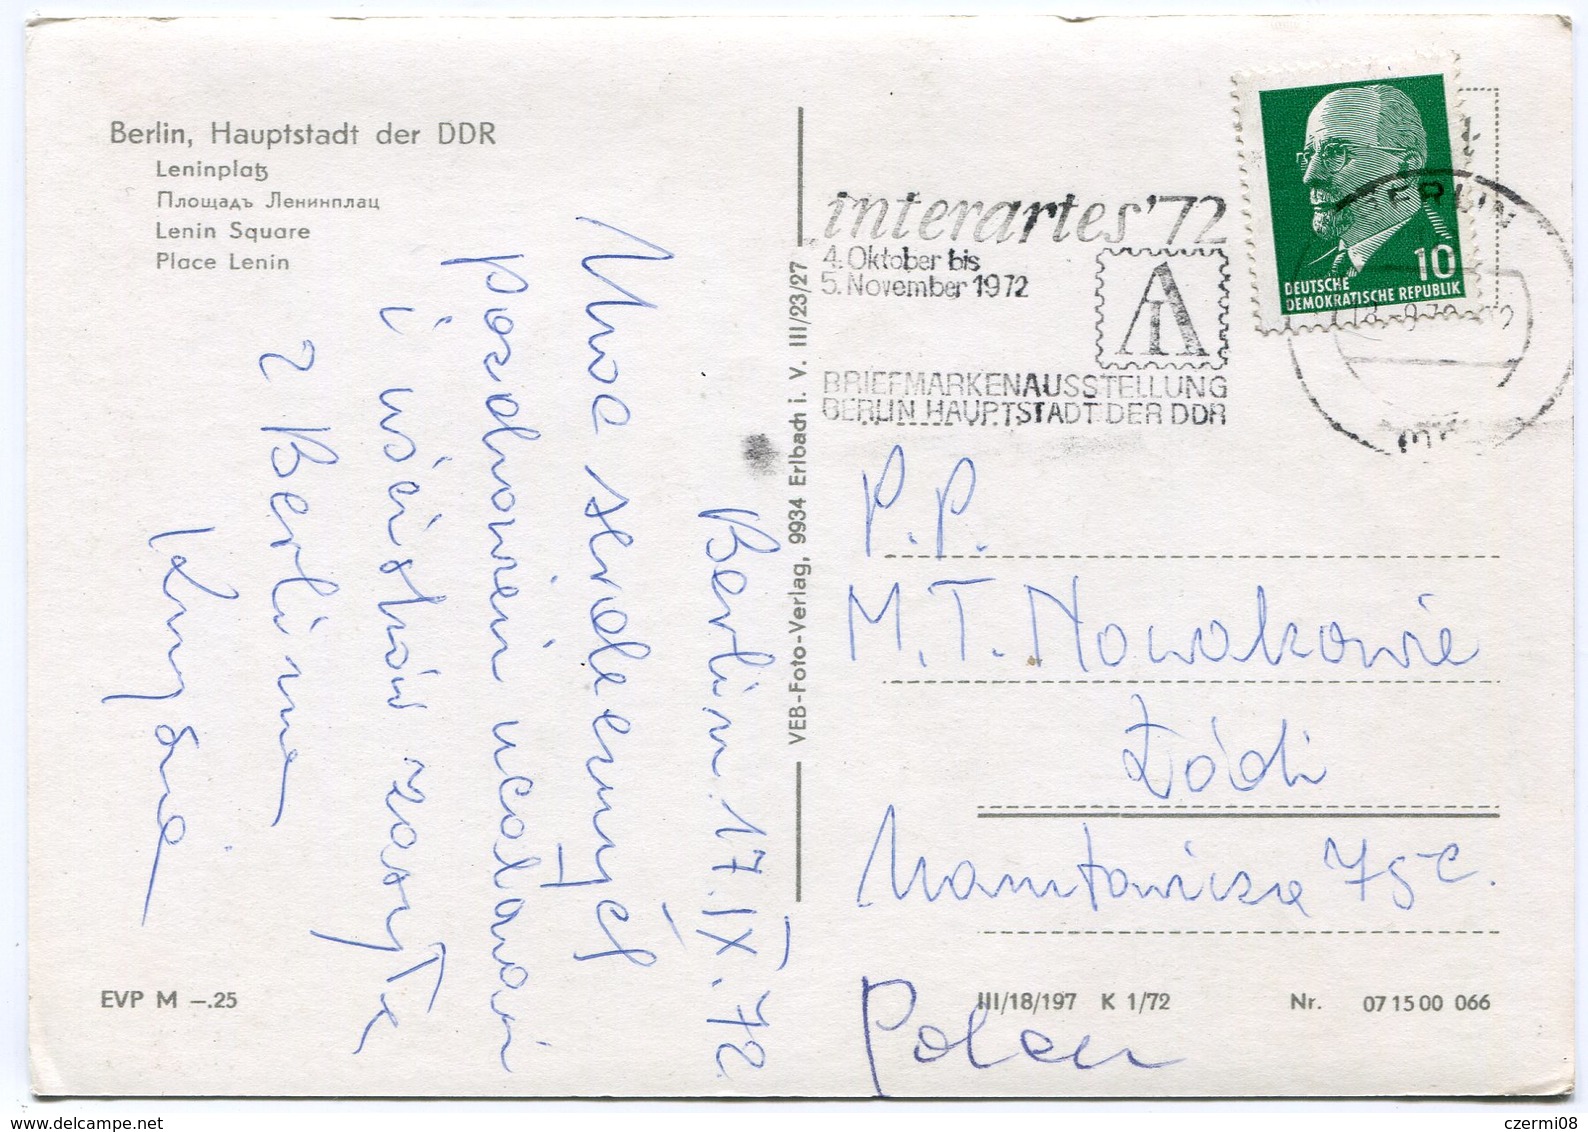 Berlin, Hauptstadt der DDR
Leninplatz
Площадъ Ленинплац
Lenin Square
Place Lenin
interartes '72
4. Oktober bis
5. November 1972
AI
BRIEFMARKENAUSSTELLUNG
BERLIN HAUPTSTADT DER DDR
BERLIN
10
DEUTSCHE
DEMOKRATISCHE REPUBLIK
Berlin 17.IX.72
Moc serdecznych
pozdrowień ucałowań
i uścisków zasyła
z Berlina
VEB-Foto-Verlag, 9934 Erlbach i. V. III/23/27
P.P.
M.T. Nowakowie
Łódź
Narutowicza 75c.
Polen
EVP M –.25
III/18/197 K 1/72
Nr. 07 15 00 066
www.delcampe.net
czermi08